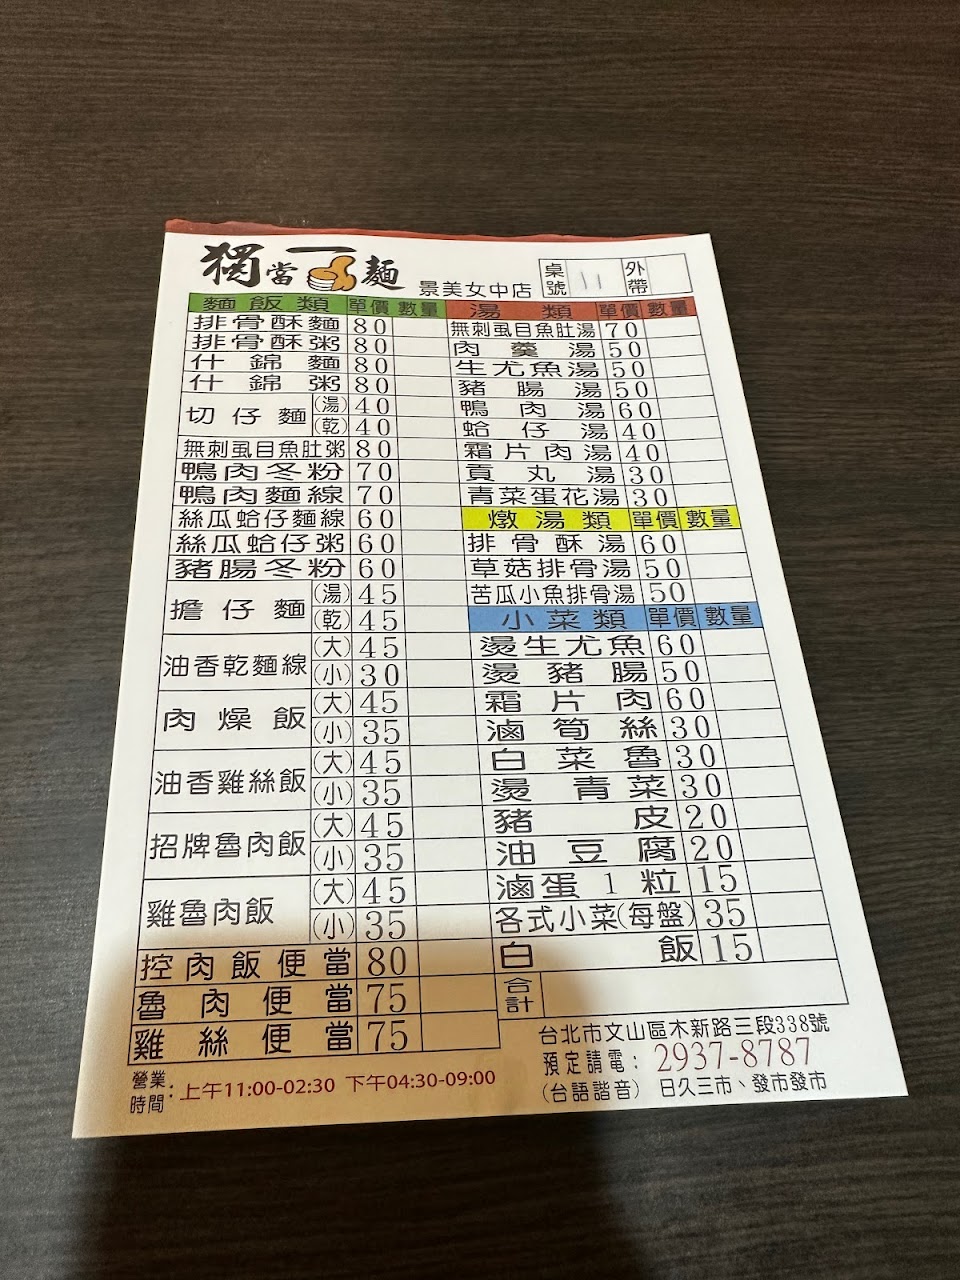 獨當一麵 景美女中店 桌號 11 外帶
麵飯類 單價 數量
排骨酥麵 80
排骨酥粥 80
什錦麵 80
什錦粥 80
切仔麵 (湯) 40
(乾) 40
無刺虱目魚肚粥 80
鴨肉冬粉 70
鴨肉麵線 70
絲瓜蛤仔麵線 60
絲瓜蛤仔粥 60
豬腸冬粉 60
擔仔麵 (湯) 45
(乾) 45
油香乾麵線 (大) 45
(小) 30
肉燥飯 (大) 45
(小) 35
油香雞絲飯 (大) 45
(小) 35
招牌魯肉飯 (大) 45
(小) 35
雞魯肉飯 (大) 45
(小) 35
控肉飯便當 80
魯肉便當 75
雞絲便當 75
湯類 單價 數量
無刺虱目魚肚湯 70
肉羹湯 50
生尤魚湯 50
豬腸湯 50
鴨肉湯 60
蛤仔湯 40
霜片肉湯 40
貢丸湯 30
青菜蛋花湯 30
燉湯類 單價 數量
排骨酥湯 60
草菇排骨湯 50
苦瓜小魚排骨湯 50
小菜類 單價 數量
燙生尤魚 60
燙豬腸 50
霜片肉 60
滷筍絲 30
白菜魯 30
燙青菜 30
豬皮 20
油豆腐 20
滷蛋1粒 15
各式小菜(每盤) 35
白飯 15
合計
營業時間: 上午11:00-02:30 下午04:30-09:00
台北市文山區木新路三段338號
預定請電: 2937-8787
(台語諧音) 日久三市、發市發市